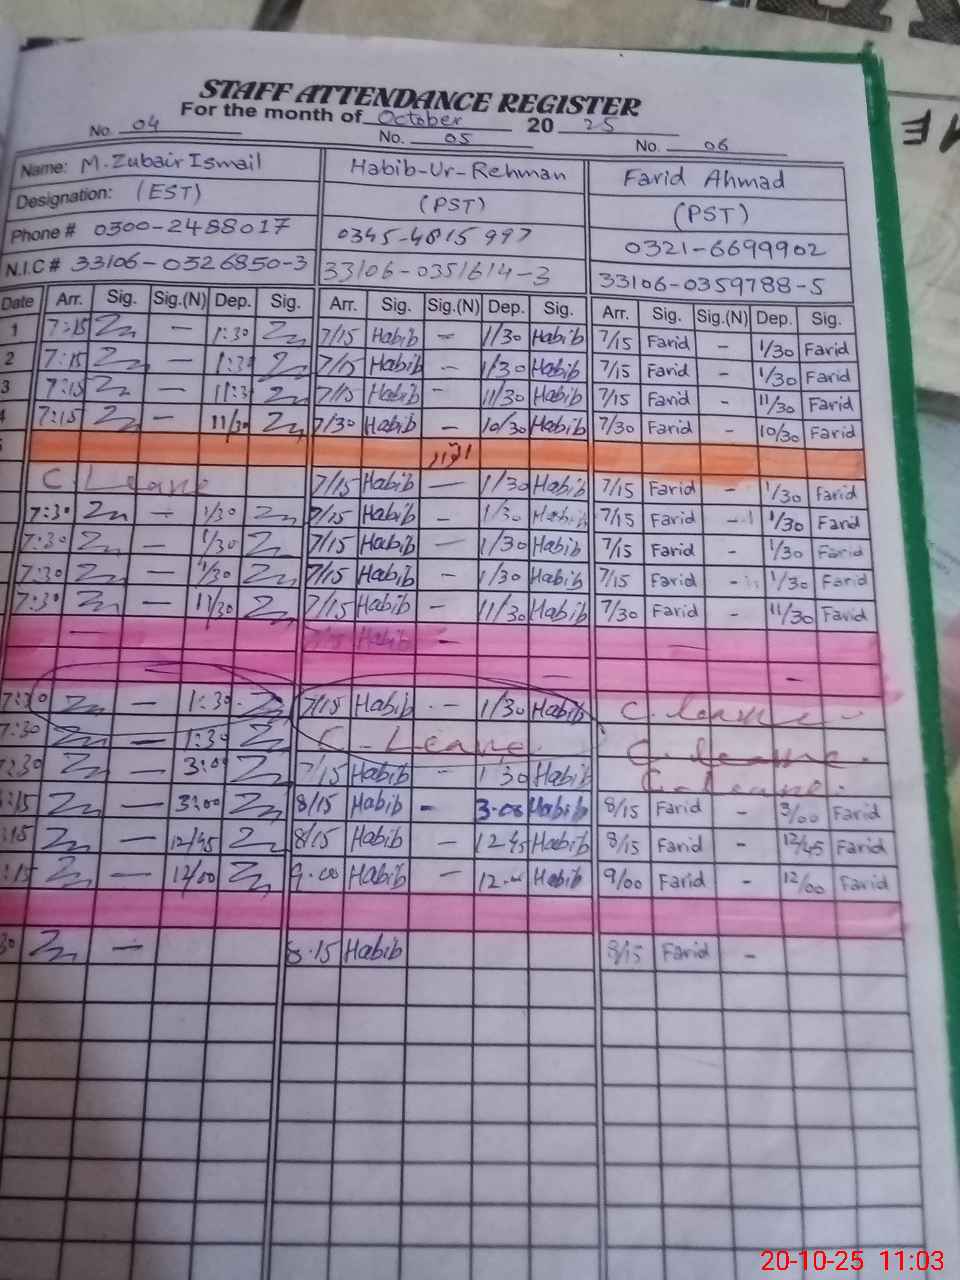 STAFF ATTENDANCE REGISTER
For the month of October 20 25
No. 04 No. 05 No. 06
Name: M. Zubair Ismail Habib-Ur-Rehman Farid Ahmad
Designation: (EST) (PST) (PST)
Phone # 0300-2488017 0345-4815997 0321-6699902
N.I.C # 33106-0326850-3 33106-0351614-3 33106-0359788-5
Date Arr. Sig. Sig.(N) Dep. Sig. Arr. Sig. Sig.(N) Dep. Sig. Arr. Sig. Sig.(N) Dep. Sig.
1 7:15 — 1:30 7/15 Habib – 1/30 Habib 7/15 Farid - 1/30 Farid
2 7:15 — 7/15 Habib – 1/30 Habib 7/15 Farid - 1/30 Farid
3 7:15 — 7/15 Habib – 11/30 Habib 7/15 Farid - 11/30 Farid
4 7:15 — 11/30 7/30 Habib – 10/30 Habib 7/30 Farid - 10/30 Farid
اتوار
C. Leave 7/15 Habib — 1/30 Habib 7/15 Farid - 1/30 Farid
7:30 — 1/30 7/15 Habib – 1/30 Habib 7/15 Farid - 1/30 Farid
7:30 — 1/30 7/15 Habib – 1/30 Habib 7/15 Farid - 1/30 Farid
7:30 — 1/30 7/15 Habib – 1/30 Habib 7/15 Farid - 1/30 Farid
7:30 — 11/30 7/15 Habib – 11/30 Habib 7/30 Farid - 11/30 Farid
— 7/15 Habib – —
— — -
7:30 — 1:30 7/15 Habib - 1/30 Habib C. leave -
7:30 — 1:30 C - Leave C. leave.
7:30 — 3:00 7/15 Habib - 1 30 Habib C. leave.
:15 — 3:00 8/15 Habib - 3.00 Habib 8/15 Farid - 3/00 Farid
:15 — 12/45 8/15 Habib – 12.45 Habib 8/15 Farid - 12/45 Farid
:15 — 12/00 9.00 Habib – 12.00 Habib 9/00 Farid - 12/00 Farid
30 — 8.15 Habib 8/15 Farid -
20-10-25 11:03